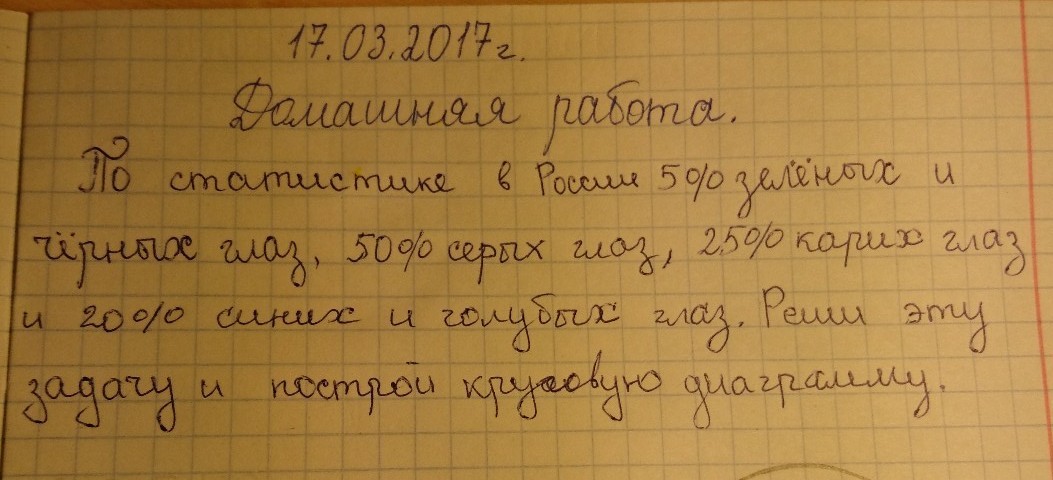 17.03.2017г.
Домашняя работа.
По статистике в России 5% зелёных и
чёрных глаз, 50% серых глаз, 25% карих глаз
и 20% синих и голубых глаз. Реши эту
задачу и построй круговую диаграмму.